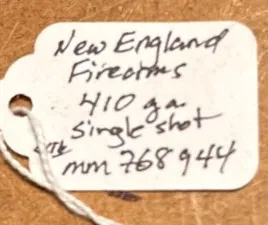 New England
Firearms
410 ga
single shot
mm 768944